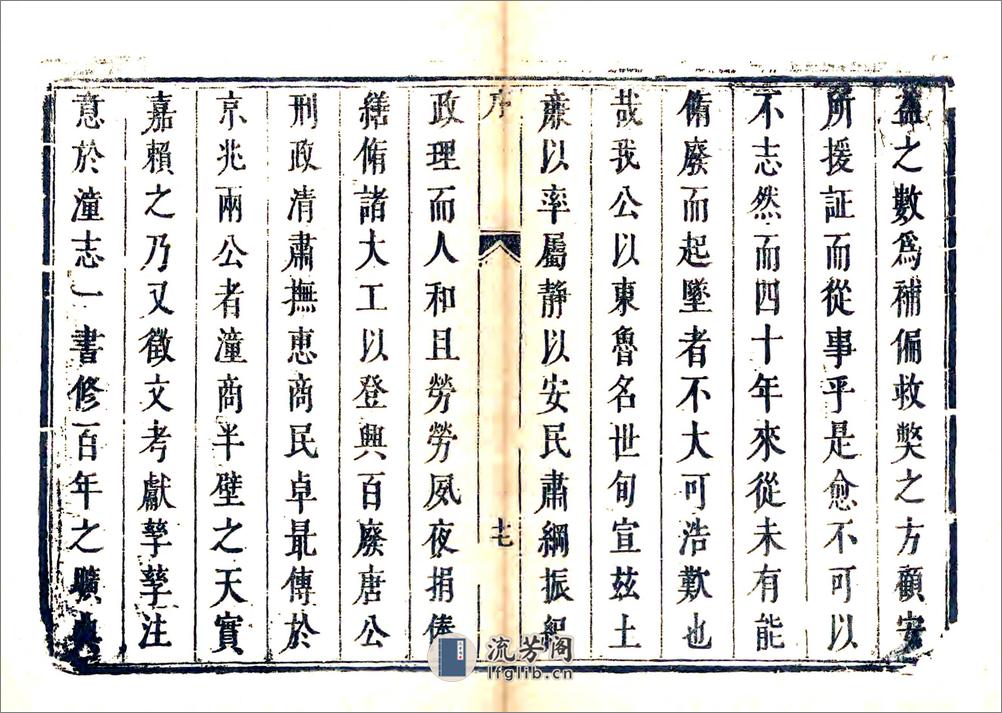 益之數爲補偏救弊之方顧安
所援証而從事乎是愈不可以
不志然而四十年來從未有能
脩廢而起墜者不大可浩歎也
哉我公以東魯名世旬宣茲土
廉以率屬靜以安民肅綱振紀
序
七
政理而人和且勞勞夙夜捐俸
繕脩諸大工以登興百廢唐公
刑政清肅撫恵商民卓最傳於
京兆兩公者潼商半壁之天實
嘉賴之乃又徵文考獻孳孳注
意於潼志一書修百年之曠典
流芳阁
lfglib.cn